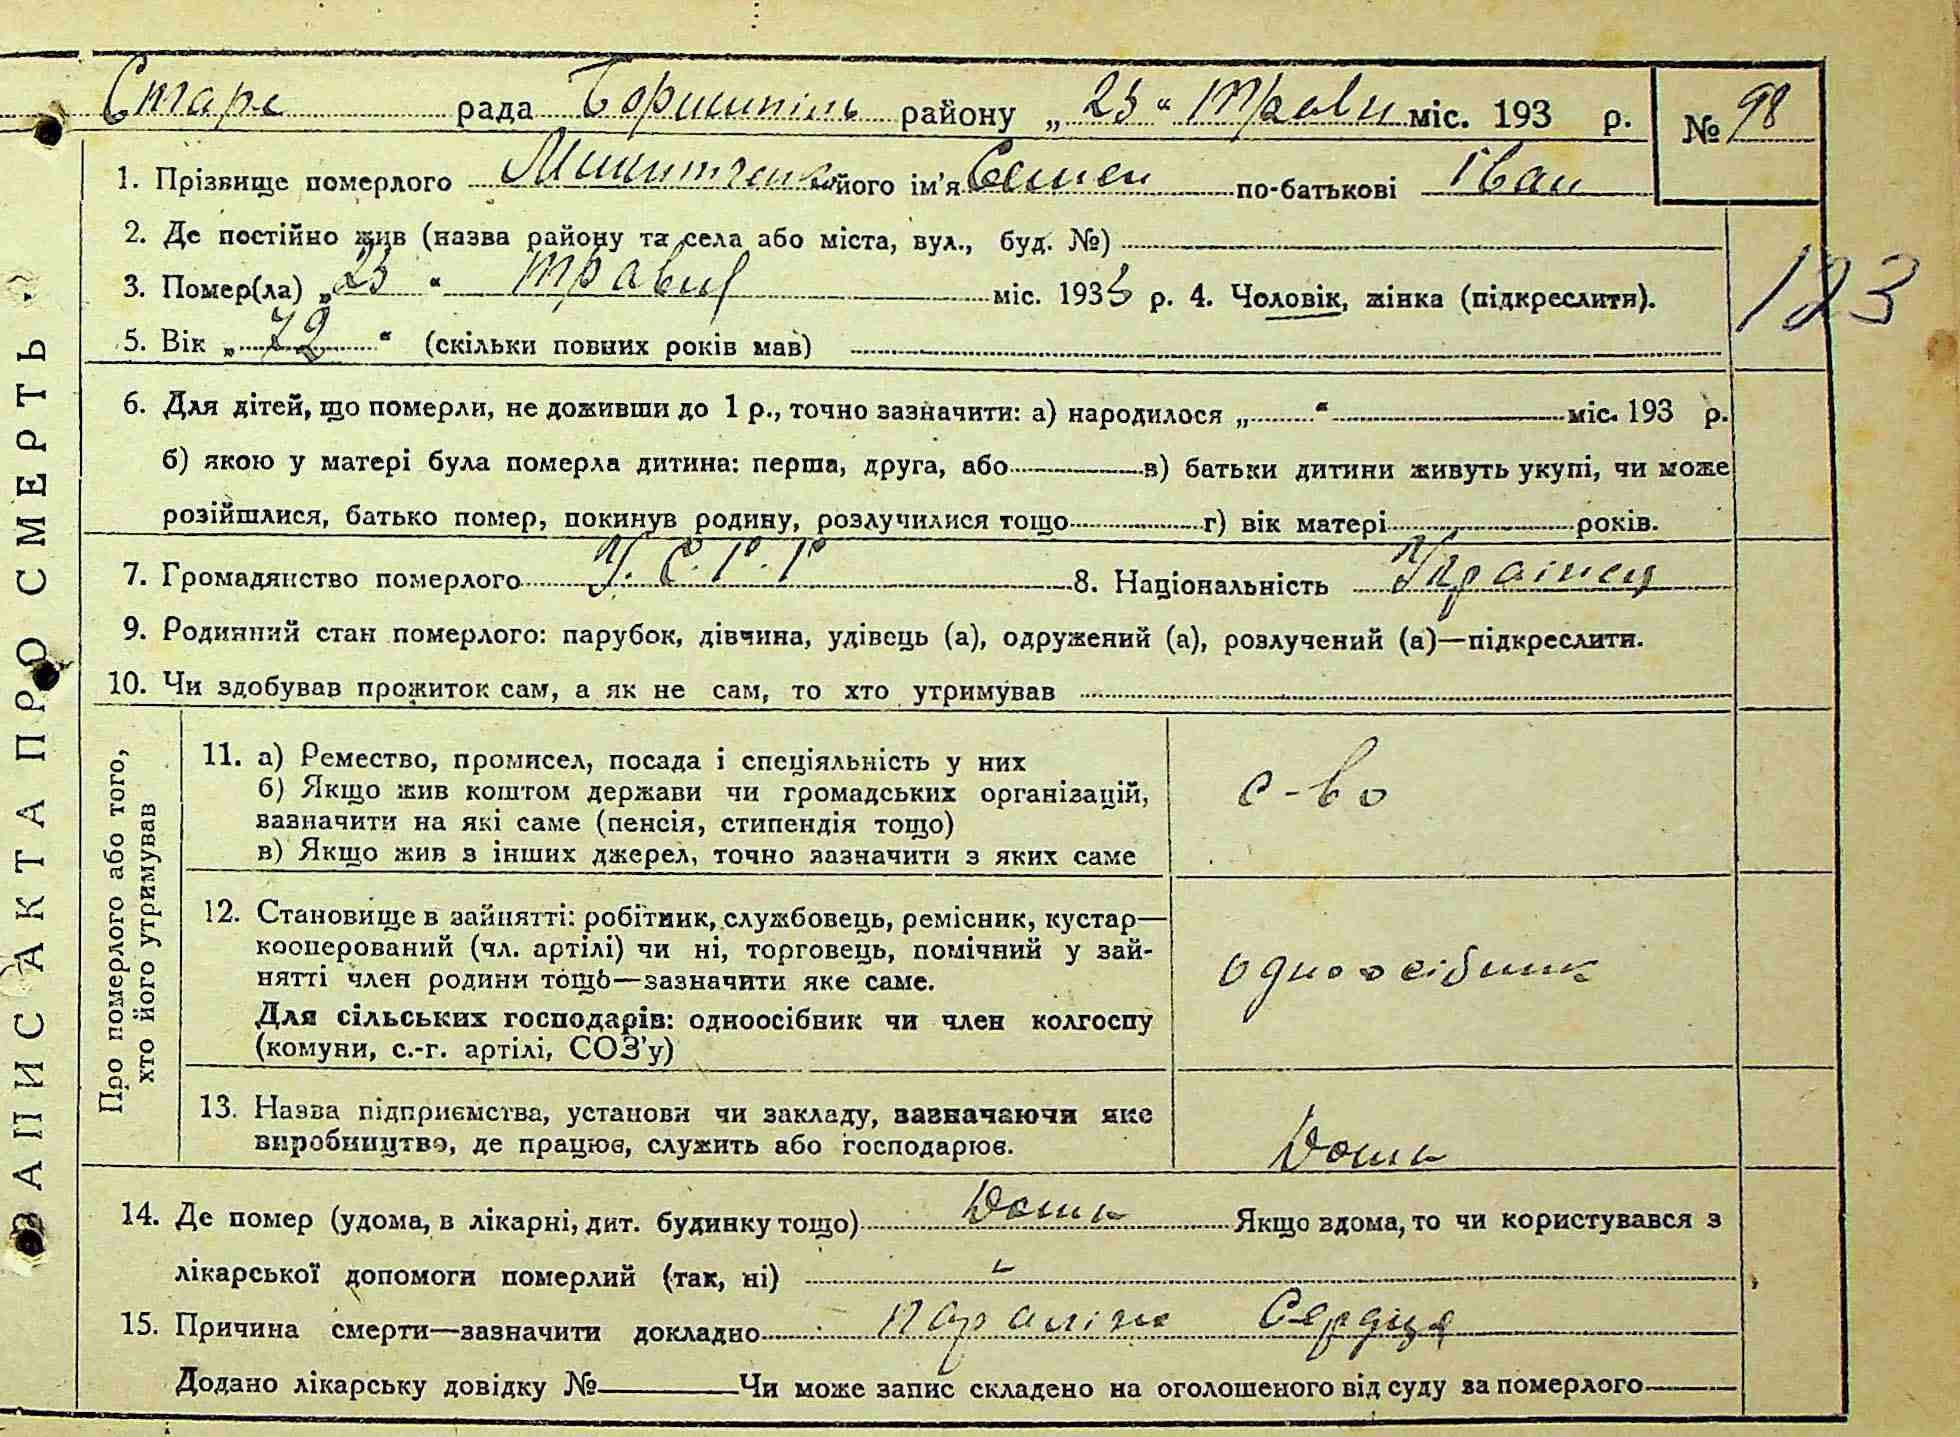 Старе рада Бориспіль району „ 23 “ Травн міс. 193 р. № 98
1. Прізвище померлого його ім'я Семен по-батькові Іван
2. Де постійно жив (назва району та села або міста, вул., буд. №)
3. Помер(ла) „ 23 “ травня міс. 1933 р. 4. Чоловік, жінка (підкреслити).
123
5. Вік „ 72 “ (скільки повних років мав)
6. Для дітей, що померли, не доживши до 1 р., точно зазначити: а) народилося „ “ міс. 193 р.
б) якою у матері була померла дитина: перша, друга, або в) батьки дитини живуть укупі, чи може
розійшлися, батько помер, покинув родину, розлучилися тощо г) вік матері років.
7. Громадянство померлого У.С.Р.Р 8. Національність Українец
9. Родинний стан померлого: парубок, дівчина, удівець (а), одружений (а), розлучений (а)—підкреслити.
10. Чи здобував прожиток сам, а як не сам, то хто утримував
Про померлого або того,
хто його утримував
11. а) Ремество, промисел, посада і спеціяльність у них
б) Якщо жив коштом держави чи громадських організацій,
зазначити на які саме (пенсія, стипендія тощо)
в) Якщо жив з інших джерел, точно зазначити з яких саме
с-во
12. Становище в зайнятті: робітник, службовець, ремісник, кустар—
кооперований (чл. артілі) чи ні, торговець, помічний у зай-
нятті член родини тощо—зазначити яке саме.
Для сільських господарів: одноосібник чи член колгоспу
(комуни, с.-г. артілі, СОЗ'у)
одноосібник
13. Назва підприємства, установи чи закладу, зазначаючи яке
виробництво, де працює, служить або господарює.
Дома
14. Де помер (удома, в лікарні, дит. будинку тощо) Дома Якщо вдома, то чи користувався з
лікарської допомоги померлий (так, ні)
15. Причина смерти—зазначити докладно параліж Сердця
Додано лікарську довідку № Чи може запис складено на оголошеного від суду за померлого
ЗАПИС АКТА ПРО СМЕРТЬ